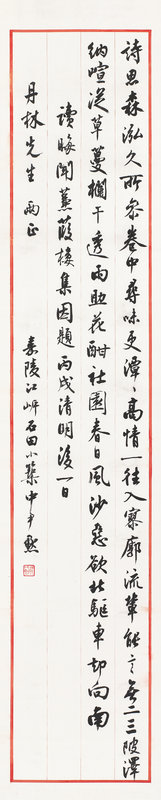 詩思森泓久所參卷中尋味更潭潭高情一往入寥廓流輩能言無二三陂澤
納喧泛草蔓欄干透雨助花酣社園春日風沙惡欲北驅車却向南
讀晦聞蒹葭樓集因題丙戌清明後一日
丹林先生兩正
嘉陵江畔石田小築中尹默